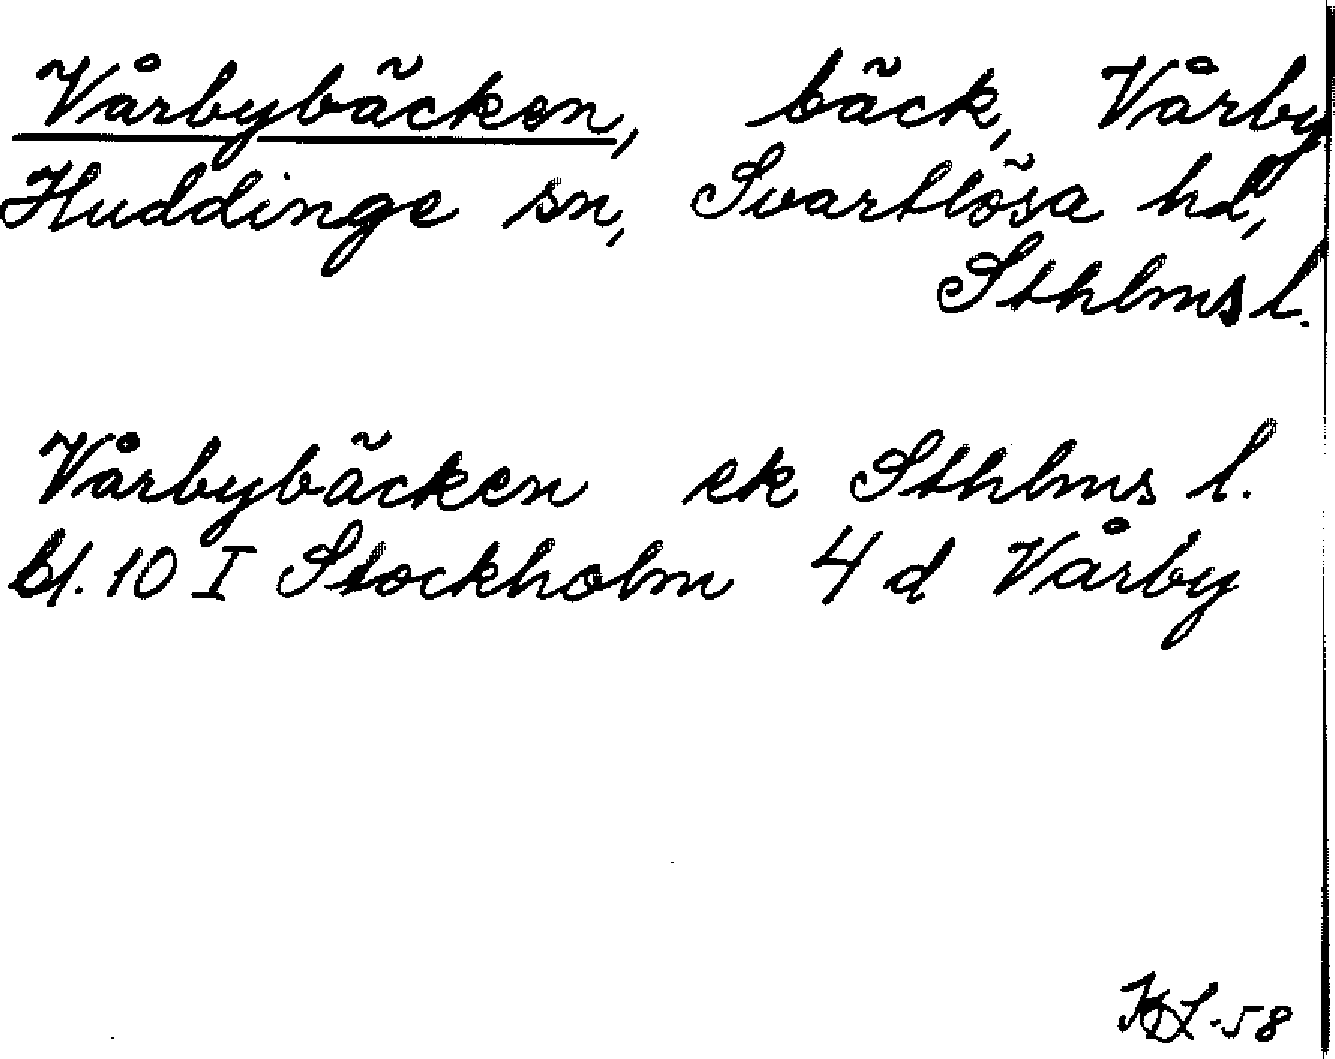 Vårbybäcken, bäck, Vårby
Huddinge sn, Svartlösa hd,
Sthlms l.
Vårbybäcken ek Sthlms l.
bl. 10 I Stockholm 4 d Vårby
-58